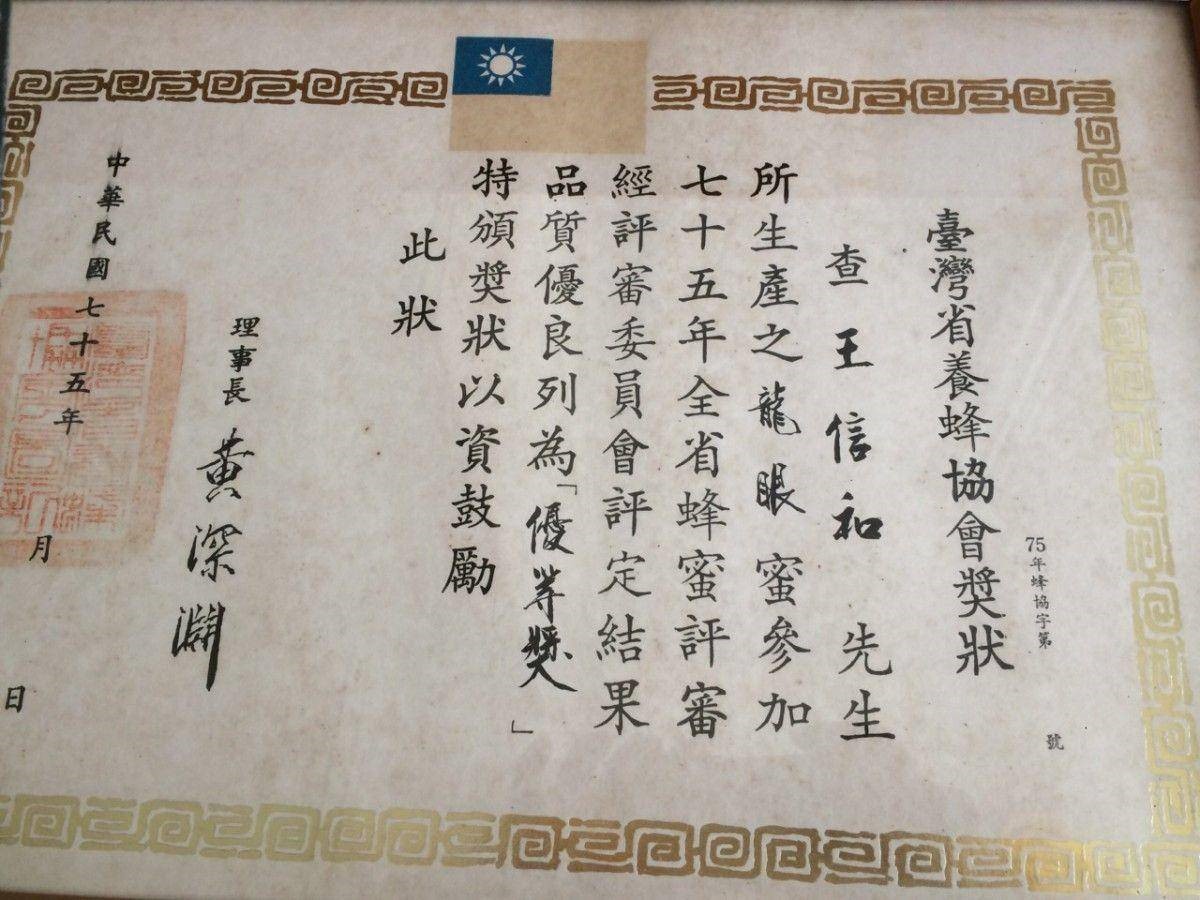 臺灣省養蜂協會獎狀
75年蜂協字第 號
查王信和先生
所生產之龍眼蜜參加
七十五年全省蜂蜜評審
經評審委員會評定結果
品質優良列為「優等獎」
特頒獎狀以資鼓勵
此狀
理事長 黃深淵
中華民國七十五年 月 日